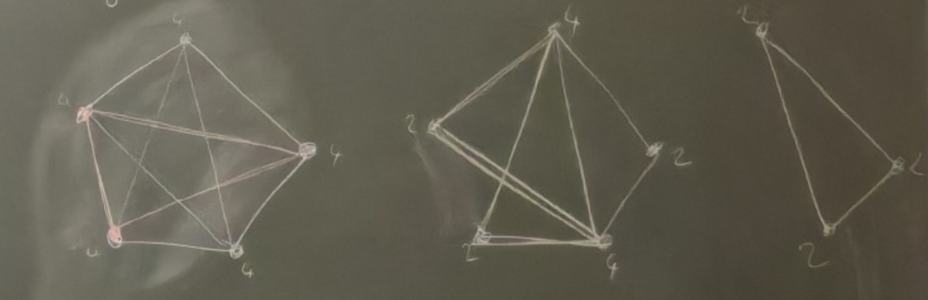 4
4
4
4
4
4
2
2
2
4
2
2
2